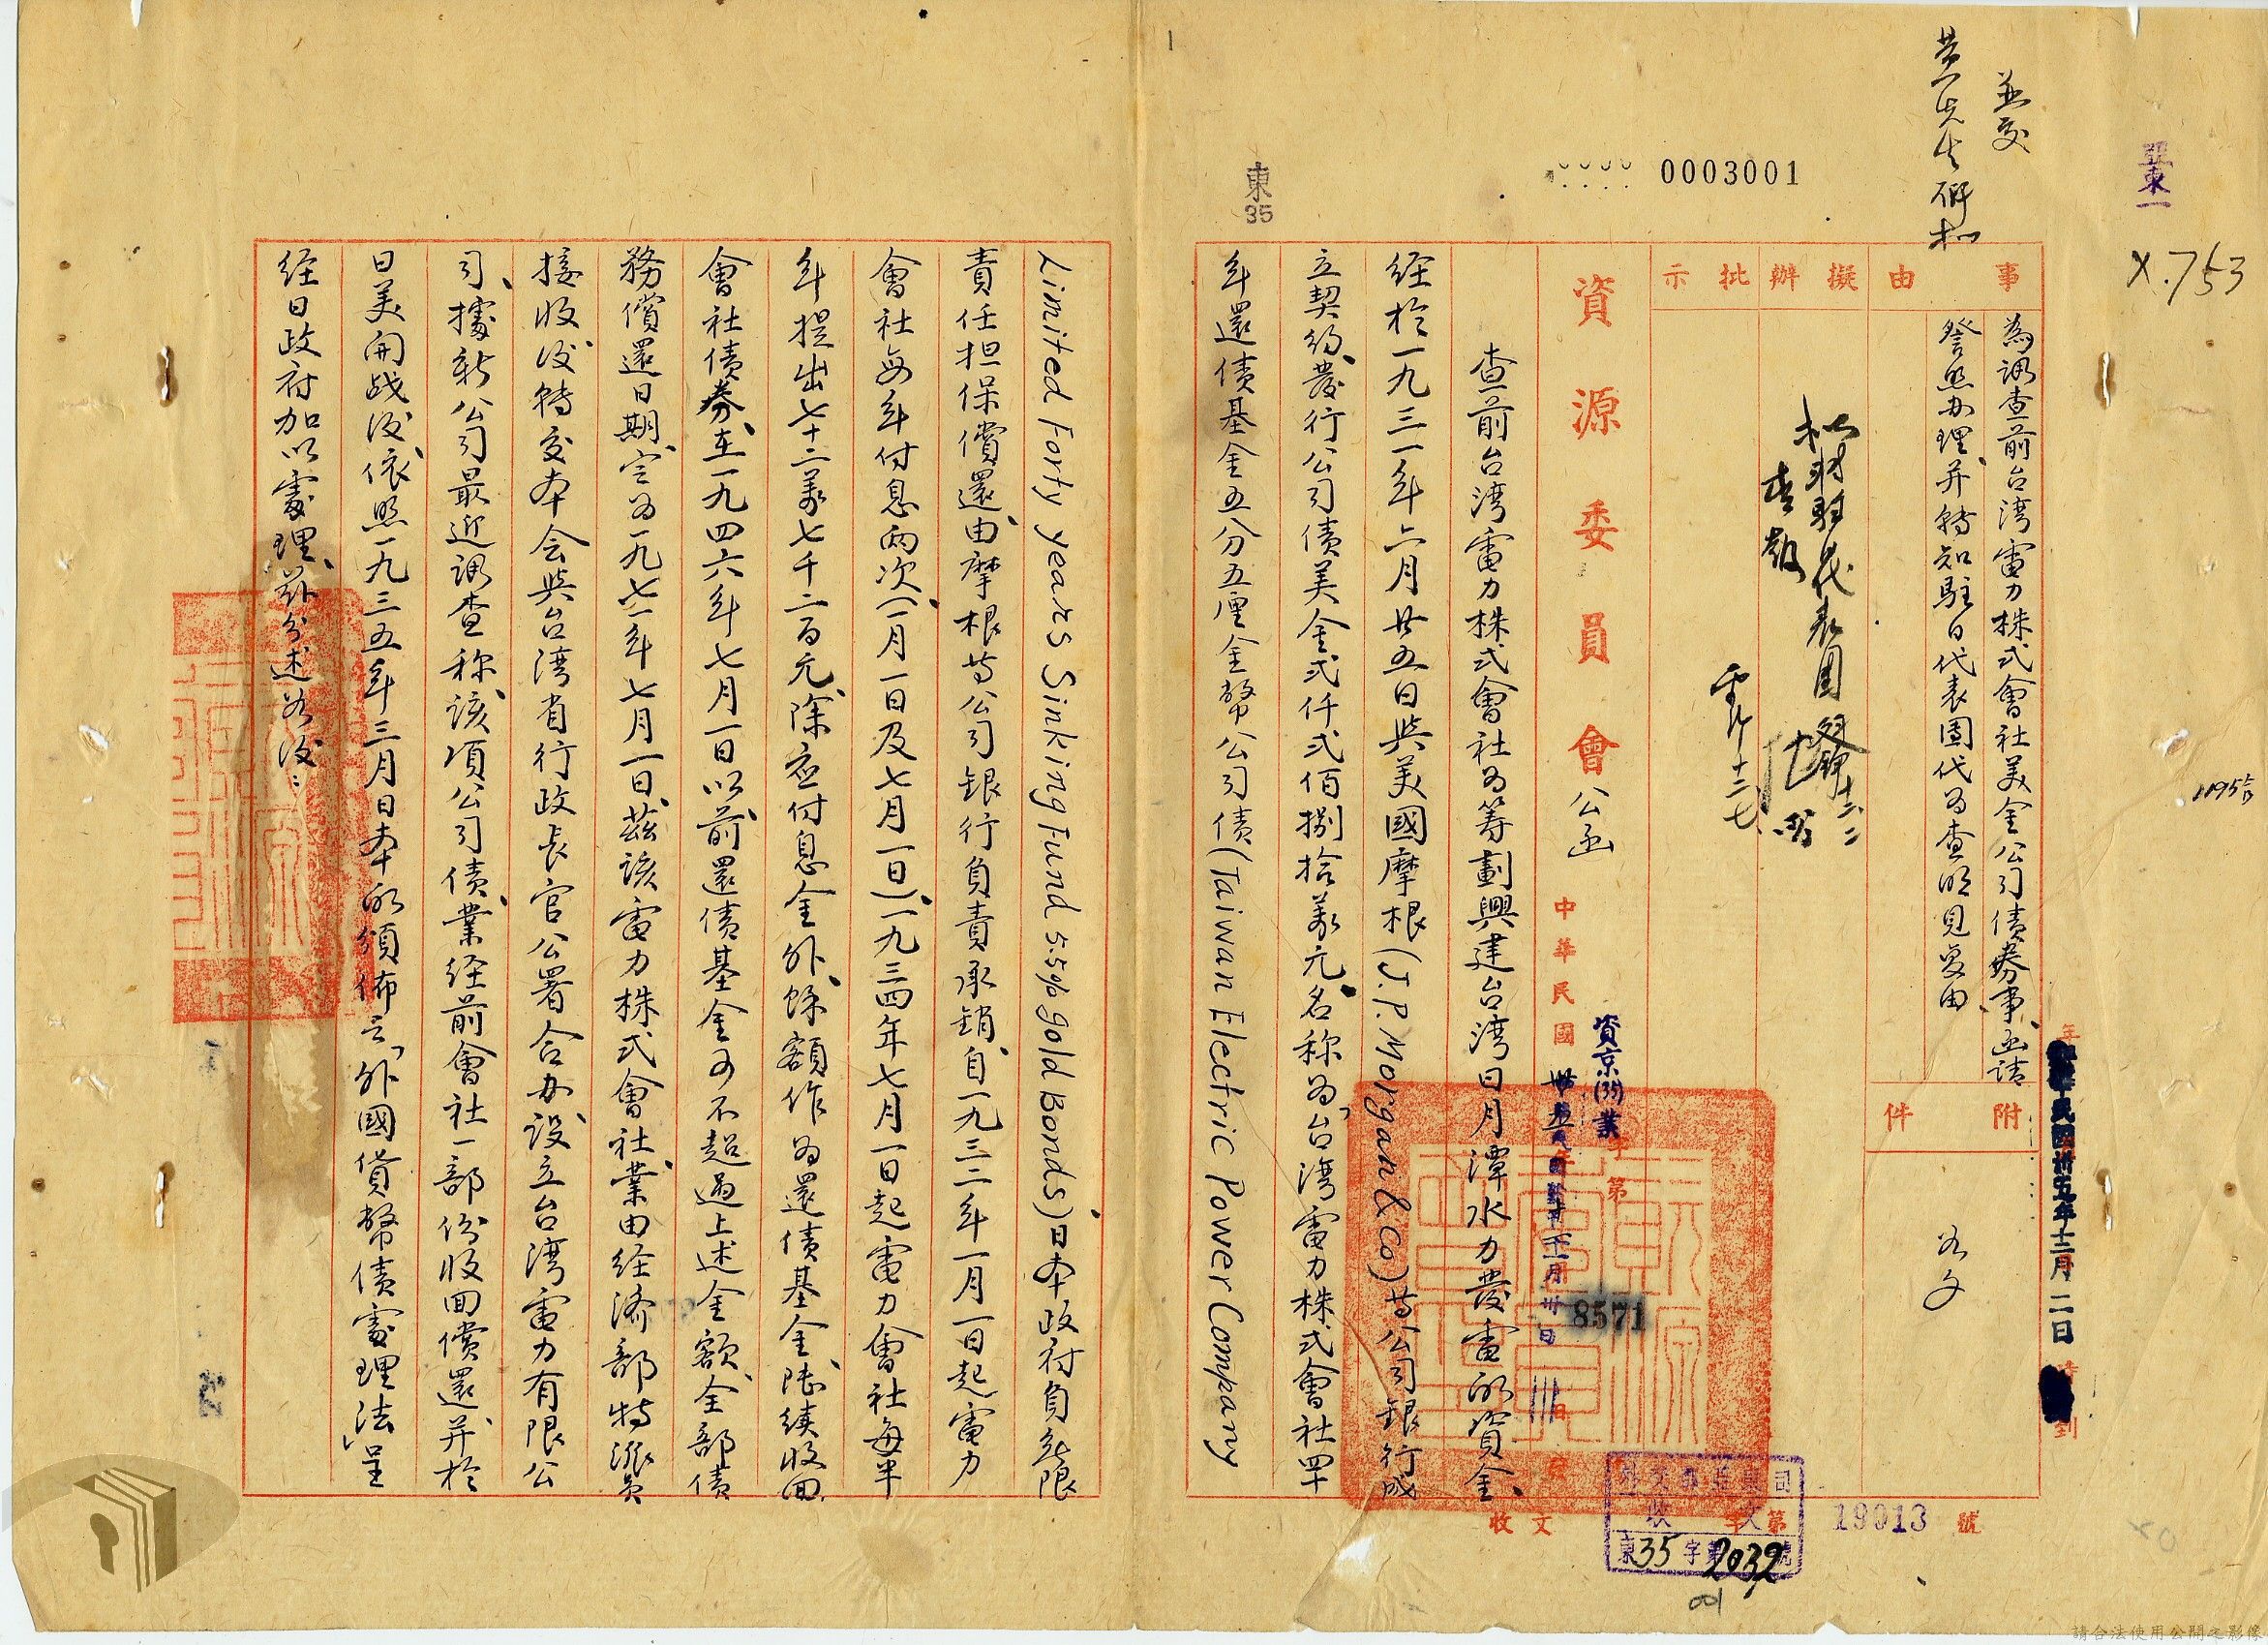 並交
黃先生研擬
東一
X.753
0003001
東
35
事由
擬辦
批示
為調查前台湾電力株式會社美金公司債券事、函請
詧照办理、并轉知駐日代表團代為查明見复由
附件
如文
擬將駐代表團
資源委員會公函
資京(35)業
字第
8571
中華民國
卅五年十一月卅日
民國卅五年十二月二日
查前台湾電力株式會社为筹劃興建台湾日月潭水力發電的資金、
经於一九三一年六月廿五日與美國摩根(J.P. Morgan & Co)等公司銀行成
立契約、發行公司債美金弍仟弍佰捌拾萬元、名称为「台湾電力株式會社四十
年還債基金五分五厘金幣公司債(Taiwan Electric Power Company
Limited Forty years Sinking Fund 5.5% gold Bonds)日本政府負無限
責任担保償還、由摩根等公司銀行負責承銷、自一九三二年一月一日起電力
會社每年付息兩次(一月一日及七月一日)、一九三四年七月一日起電力會社每半
年提出七十二萬七千二百元、除应付息金外、餘額作为還債基金、陸续收回
會社債券、在一九四六年七月一日以前、還債基金可不超過上述金額、全部債
務償還日期、定为一九七一年七月一日、茲該電力株式會社、業由经济部特派員
接收後轉交本会與台湾省行政長官公署合办設立台湾電力有限公
司、據新公司最近調查称該項公司債、業经前會社一部份收回償還、并於
日美開战後、依照一九三五年三月日本的頒佈之「外國貨幣債處理法」呈
经日政府加以處理、茲分述如後：
收文
字第
19013
號
外交部亞東司
收文
東35字第2032號
東
35
請合法使用公開之影像